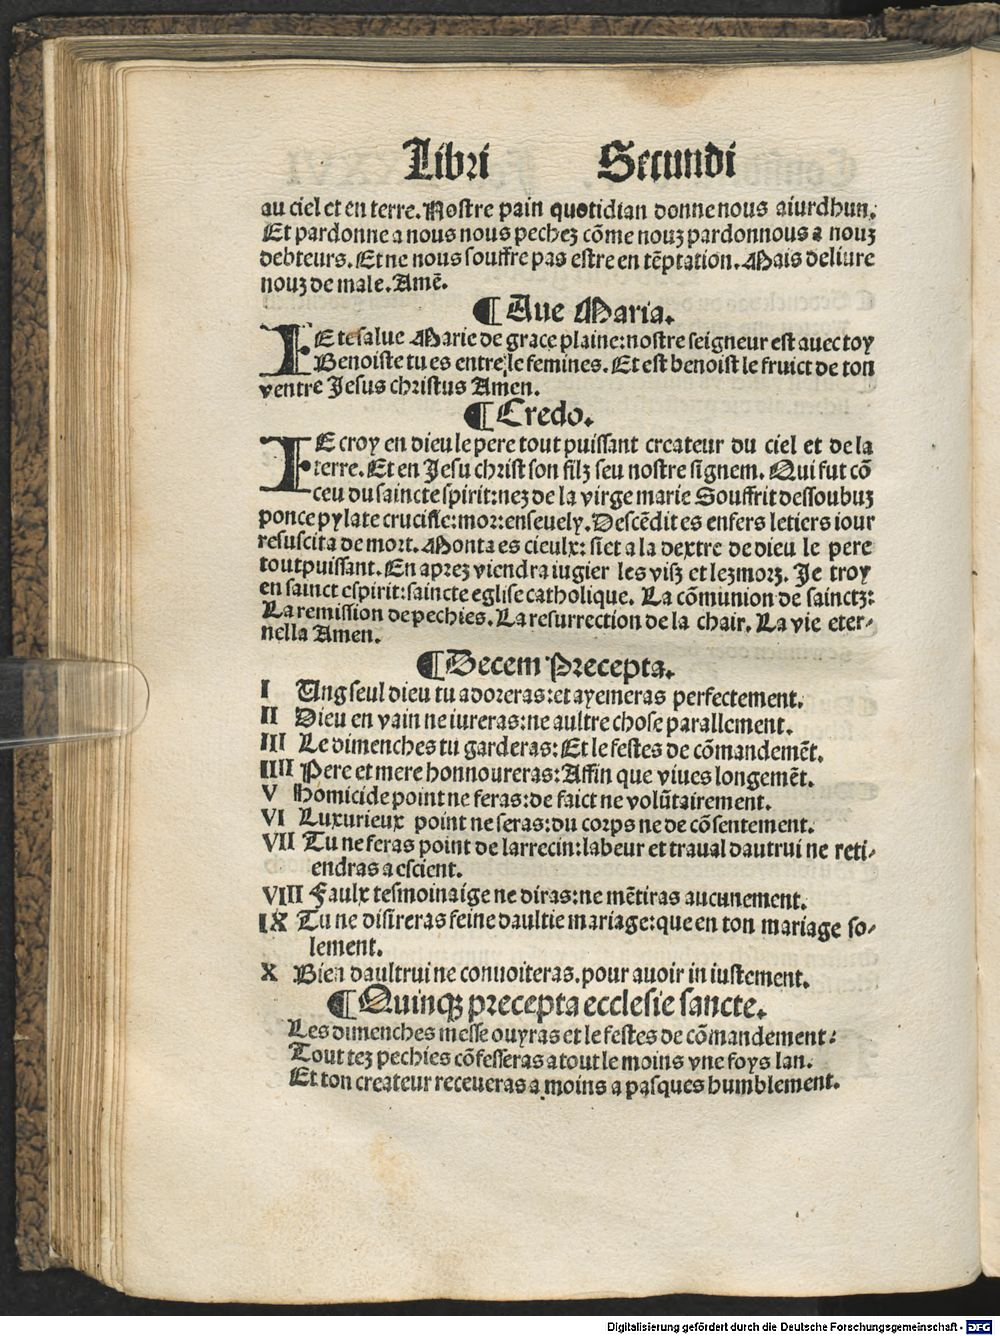 Libri Secundi
au ciel et en terre. Nostre pain quotidian donne nous aiurdhun.
Et pardonne a nous nous pechez cõme nouz pardonnous a nouz
debteurs. Et ne nous souffre pas estre en tẽptation. Mais deliure
nouz de male. Amẽ.
¶ Aue Maria.
IE te salue Marie de grace plaine: nostre seigneur est auec toy
Benoiste tu es entre le femines. Et est benoist le fruict de ton
ventre Jesus christus Amen.
¶ Credo.
IE croy en dieu le pere tout puissant createur du ciel et de la
terre. Et en Jesu christ son filz seu nostre signem. Qui fut cõ
ceu du saincte spirit: nez de la virge marie Souffrit dessoubuz
ponce pylate crucifie: mor: enseuely. Descẽdit es enfers le tiers iour
resuscita de mort. Monta es cieulx: siet a la dextre de dieu le pere
toutpuissant. En aprez viendra iugier les visz et lez morz. Je troy
en sainct espirit: saincte eglise catholique. La cõmunion de sainctz:
La remission de pechies. La resurrection de la chair. La vie eter-
nella Amen.
¶ Decem Precepta.
I Ung seul dieu tu adoreras: et ayemeras perfectement.
II Dieu en vain ne iureras: ne aultre chose parallement.
III Le dimenches tu garderas: Et le festes de cõmandemẽt.
IIII Pere et mere honnoureras: Affin que viues longemẽt.
V Homicide point ne feras: de faict ne volũtairement.
VI Luxurieux point ne seras: du corps ne de cõsentement.
VII Tu ne feras point de larrecin: labeur et traual dautrui ne reti-
endras a escient.
VIII Faulx tesmoinaige ne diras: ne mẽtiras aucunement.
IX Tu ne disireras feine daultie mariage: que en ton mariage so-
lement.
X Bien daultrui ne conuoiteras. pour auoir in iustement.
¶ Quinqꝫ precepta ecclesie sancte.
Les dimenches messe ouyras et le festes de cõmandement:
Tout tez pechies cõfesseras a tout le moins vne foys lan.
Et ton createur receueras a moins a pasques humblement.
Digitalisierung gefördert durch die Deutsche Forschungsgemeinschaft - DFG